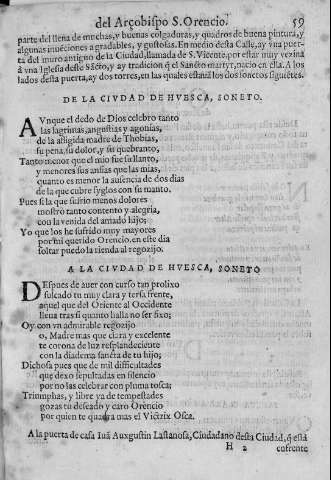 del Arçobispo S. Orencio. 59
parte del llena de muchas, y buenas colgaduras, y quadros de buena pintura, y
algunas inuēciones agradables, y gustosas. En medio desta Calle, ay vna puer-
ta del muro antiguo de la Ciudad, llamada de S. Vicente, por estar muy vezina
á vna Iglesia deste Sācto, y ay tradicion q̃ el Sancto martyr, nacio en ella. A los
lados desta puerta, ay dos torres, en las quales estauā los dos sonetos siguiētes.
DE LA CIVDAD DE HVESCA, SONETO.
AVnque el dedo de Dios celebro tanto
las lagrimas, angustias y agonias,
de la afligida madre de Thobias,
su pena, su dolor, y su quebranto,
Tanto menor que el mio fue su llanto,
y menores sus ansias que las mias,
quanto es menor la ausencia de dos dias
de la que cubre syglos con su manto.
Pues si la que sufrio menos dolores
mostro tanto contento y alegria,
con la venida del amado hijo;
Yo que los he sufrido muy mayores
por mi querido Orencio, en este dia
soltar puedo la rienda al regozijo.
A LA CIVDAD DE HVESCA, SONETO
DEspues de auer con curso tan prolixo
sulcado tu muy clara y tersa frente,
aquel que del Oriente al Occidente
lleua tras si quanto halla no ser fixo;
Oy con vn admirable regozijo
o, Madre mas que clara y excelente
te corona de luz resplandeciente
con la diadema sancta de tu hijo;
Dichosa pues que de mil dificultades
que dexo sepultadas en silencio
por no las celebrar con pluma tosca;
Triumphas, y libre ya de tempestades
gozas tu deseado y caro Orencio
por quien te quadra mas el Victrix Osca.
A la puerta de casa Iuā Auxgustin Lastanosa, Ciudadano desta Ciudad, q̃ está
H 2 enfrente